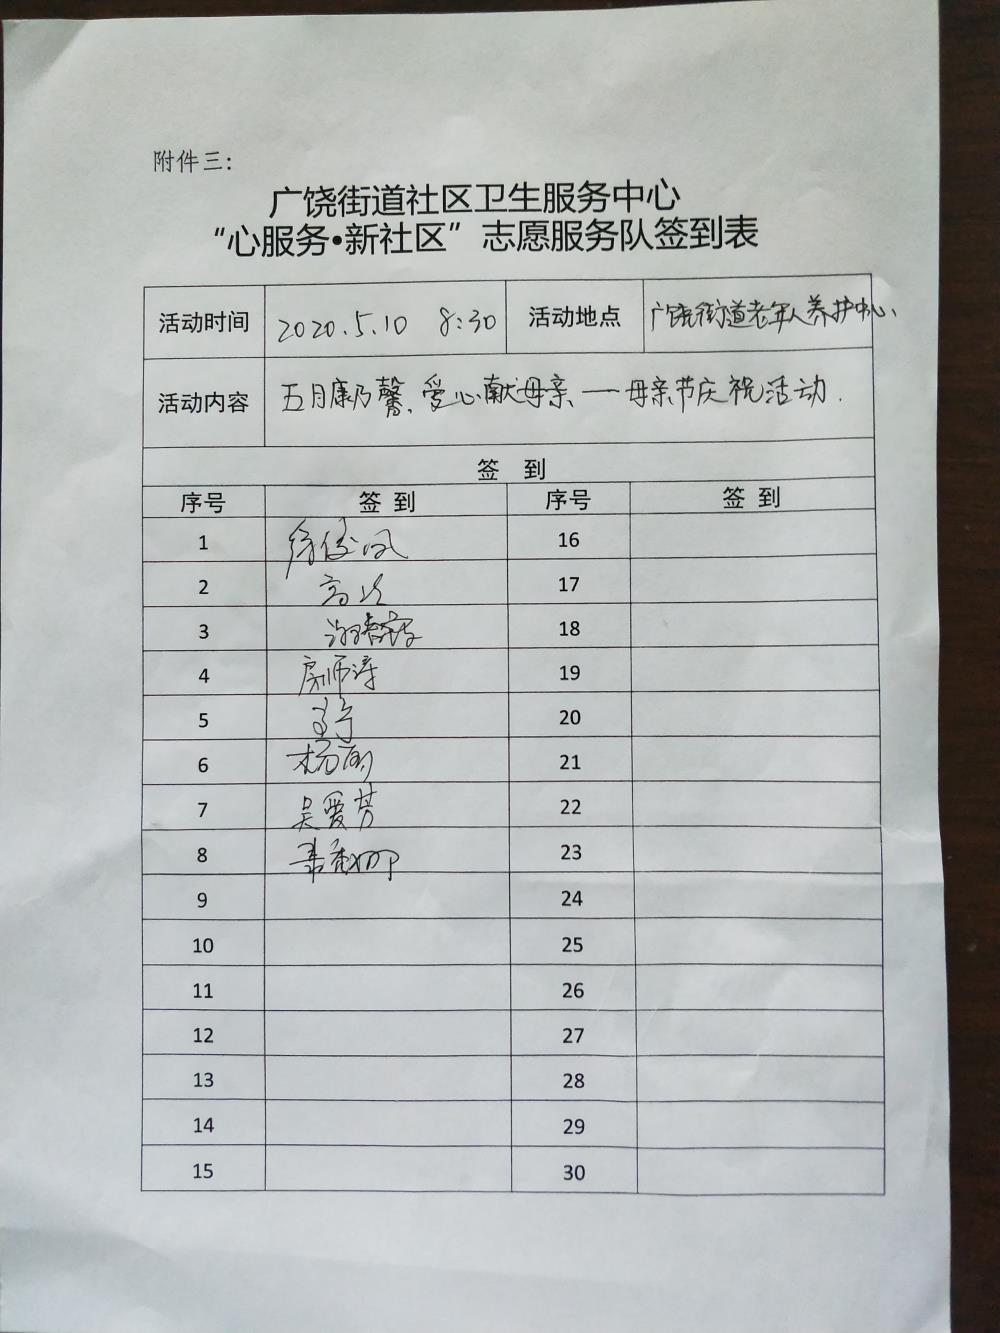 附件三：
广饶街道社区卫生服务中心
“心服务•新社区”志愿服务队签到表
活动时间 2020.5.10 8:30 活动地点 广饶街道老年人养护中心、
活动内容 五月康乃馨、爱心献母亲、—母亲节庆祝活动.
签 到
序号 签 到 序号 签 到
1 16
2 17
3 18
4 房师涛 19
5 20
6 杨丽 21
7 吴爱芳 22
8 23
9 24
10 25
11 26
12 27
13 28
14 29
15 30